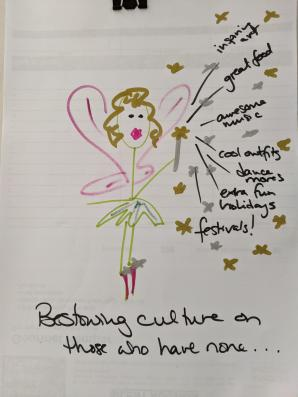 inspiring art
great food
awesome
music
cool outfits
dance
moves
extra fun
holidays
festivals!
Bestowing culture on
those who have none...